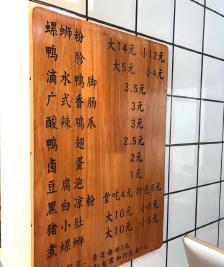 螺蛳粉 大14元 小12元
鸭胗 大5元 小4元
滴水鸭脚 3.5元
广式香肠 3元
酸辣鸡爪 3元
鸭翅 2.5元
卤蛋 2元
豆腐泡 1元
黑白凉粉 堂吃4元 打包6元
猪小 大10元 小8元
煮螺蛳 大10元 小5元